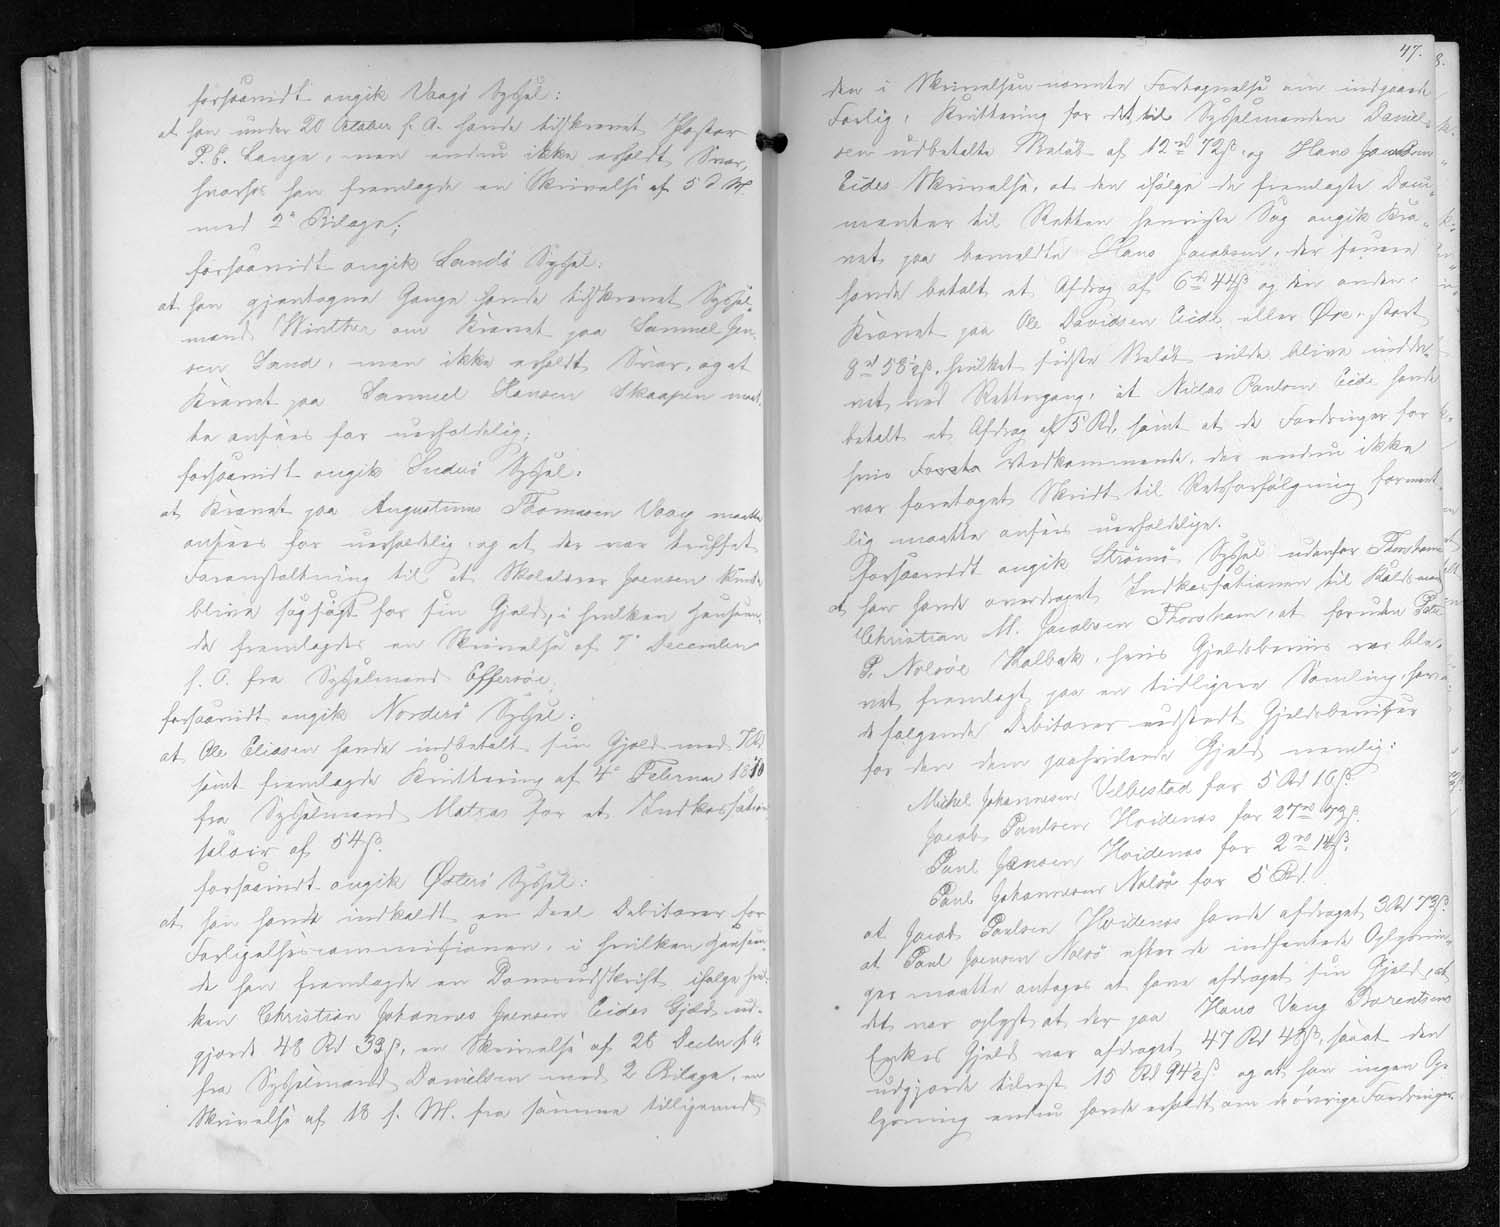 forsaavidt angik Vaagø Syssel:
at han under 20 October f. A. havde tilskrevet Pastor
P. E. Lange, men endnu ikke erholdt Svar,
hvorhos han fremlagde en Skrivelse af 5 d. M.
med 2de Bilage;
forsaavidt angik Sandø Syssel:
at han gjentagne Gange havde tilskrevet Syssel-
mand Winther om Kravet paa Samuel Jen-
sen Sand, men ikke erholdt Svar, og at
Kravet paa Samuel Hansen Skaapen maat-
te ansees for uerholdelig;
forsaavidt angik Suderø Syssel:
at Kravet paa Augustinus Thomasen Vaag maatte
ansees for uerholdelig, og at der var truffet
Foranstaltning til at Skolelærer Joensen kunde
blive sagsøgt for sin Gjæld, i hvilken Henseen-
de fremlagdes en Skrivelse af 7de December
f. A. fra Sysselmand Effersøe;
forsaavidt angik Norderø Syssel:
at Ole Eliasen havde indbetalt sin Gjæld med 7 Rd
samt fremlagde Kvittering af 4de Februar 1870
fra Sysselmand Matras for et Indkassations-
salair af 54 ß.
forsaavidt angik Østerø Syssel:
at han havde indkaldt en Deel Debitorer for
Forligelsescommissionen, i hvilken Henseen-
de han fremlagde en Domsudskrift ifølge hvil-
ken Christian Johannes Joensen Eides Gjæld ud-
gjorde 48 Rd 33 ß, en Skrivelse af 28 Decbr f. A.
fra Sysselmand Danielsen med 2 Bilage, en
Skrivelse af 18 f. M. fra samme tilligemed
47.
den i Skrivelsen nævnte Fortegnelse om indgaaede
Forlig, Kvittering for det til Sysselmanden Daniel-
sen udbetalte Beløb af 12 rd 72 ß, og Hans Jacobsen
Eides Skrivelse, at den ifølge de fremlagte Docu-
menter til Retten henviste Sag angik Kra-
vet paa bemeldte Hans Jacobsen, der senere
havde betalt et Afdrag af 6 rd 44 ß og den anden,
Kravet paa Ole Davidsen Eide eller Øre, stort
8 rd 58½ ß, hvilket sidste Beløb vilde blive inddre-
vet ved Rettergang, at Niclas Poulsen Eide havde
betalt et Afdrag af 5 Rd, samt at de Fordringer for
hvis Vedkommende, der endnu ikke
var foretaget Skridt til Retsforfølgning forment-
lig maatte ansees uerholdelige.
forsaavidt angik Strømø Syssel udenfor Thorshavn
at han havde overdraget Indkassationen til
Christian M. Jacobsen Thorshavn, at foruden Peter
P. Nolsøe Kalbak, hvis Gjældsbeviis var ble-
vet fremlagt paa en tidligere Samling, havde
de følgende Debitorer udstedt Gjældsbeviser
for den dem paahvilende Gjæld nemlig:
Michel Johannesen Velbestad for 5 Rd 16 ß.
Jacob Poulsen Hvidenæs for 27 rd 73 ß.
Poul Jensen Hvidenæs for 2 rd 14 ß.
Poul Johannesen Nolsø for 5 Rd.
at Jacob Poulsen Hvidenæs havde afdraget 3 Rd 73 ß.
at Poul Joensen Nolsø efter de indhentede Oplysnin-
ger maatte antages at have afdraget sin Gjæld, at
det var oplyst at der paa Hans Vang Barentsens
Gjæld var afdraget 47 Rd 48 ß, saaat den
udgjorde tilrest 15 Rd 94½ ß og at han ingen Op-
lysning endnu havde erholdt om de øvrige Fordringer.